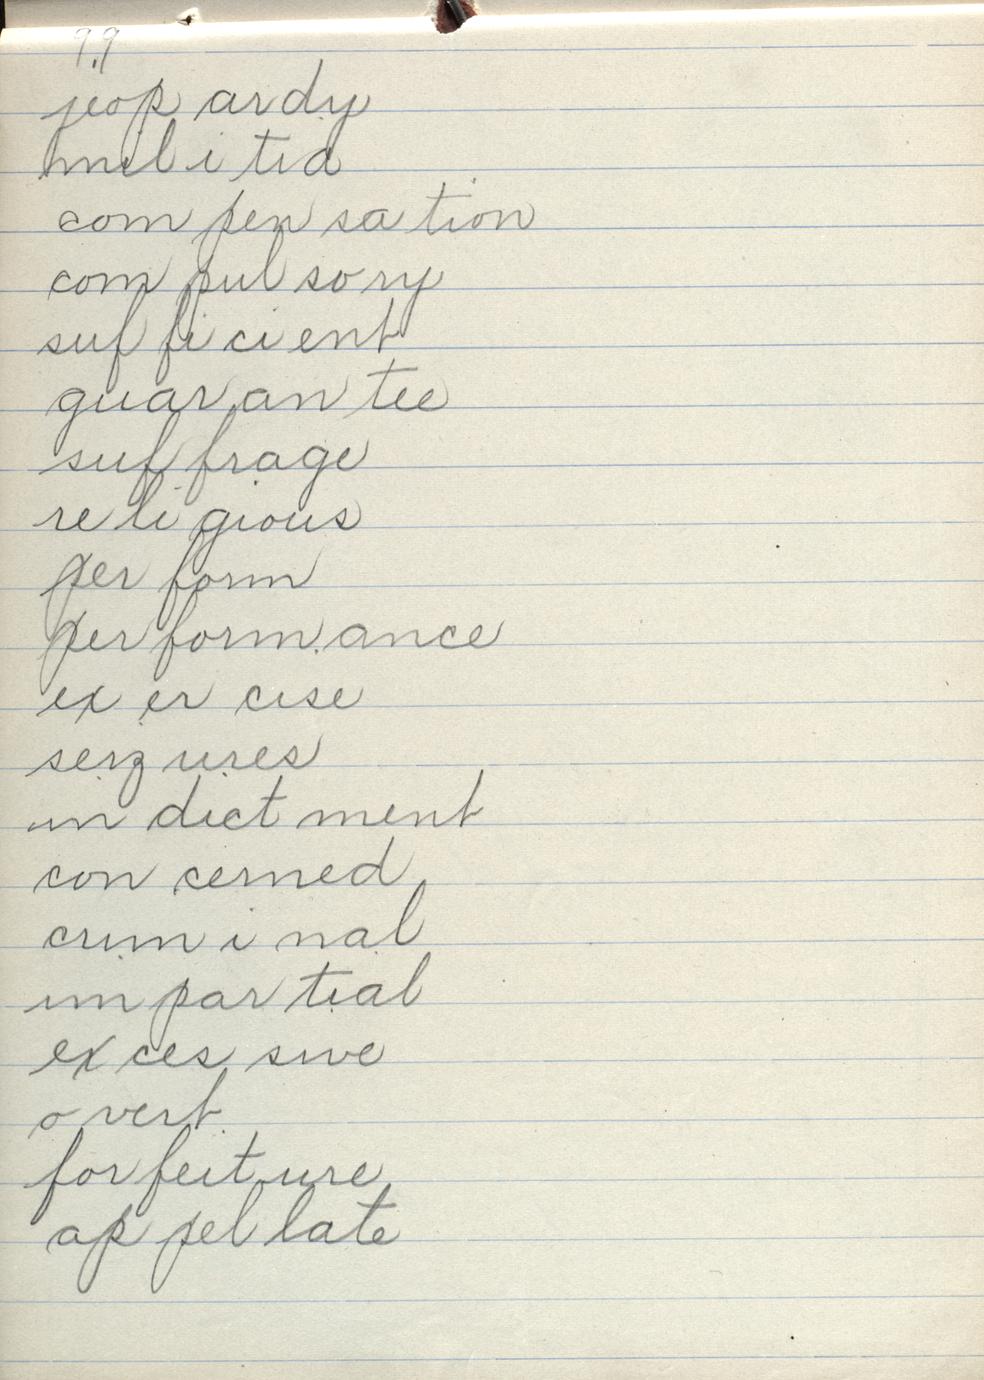 99
jeop ardy
mil i tia
com pen sa tion
com pul so ry
suf fi ci ent
guar an tee
suf frage
re li gious
per form
per form ance
ex er cise
seiz ures
in dict ment
con cerned
crim i nal
im par tial
ex ces sive
o vert
for feit ure
ap pel late